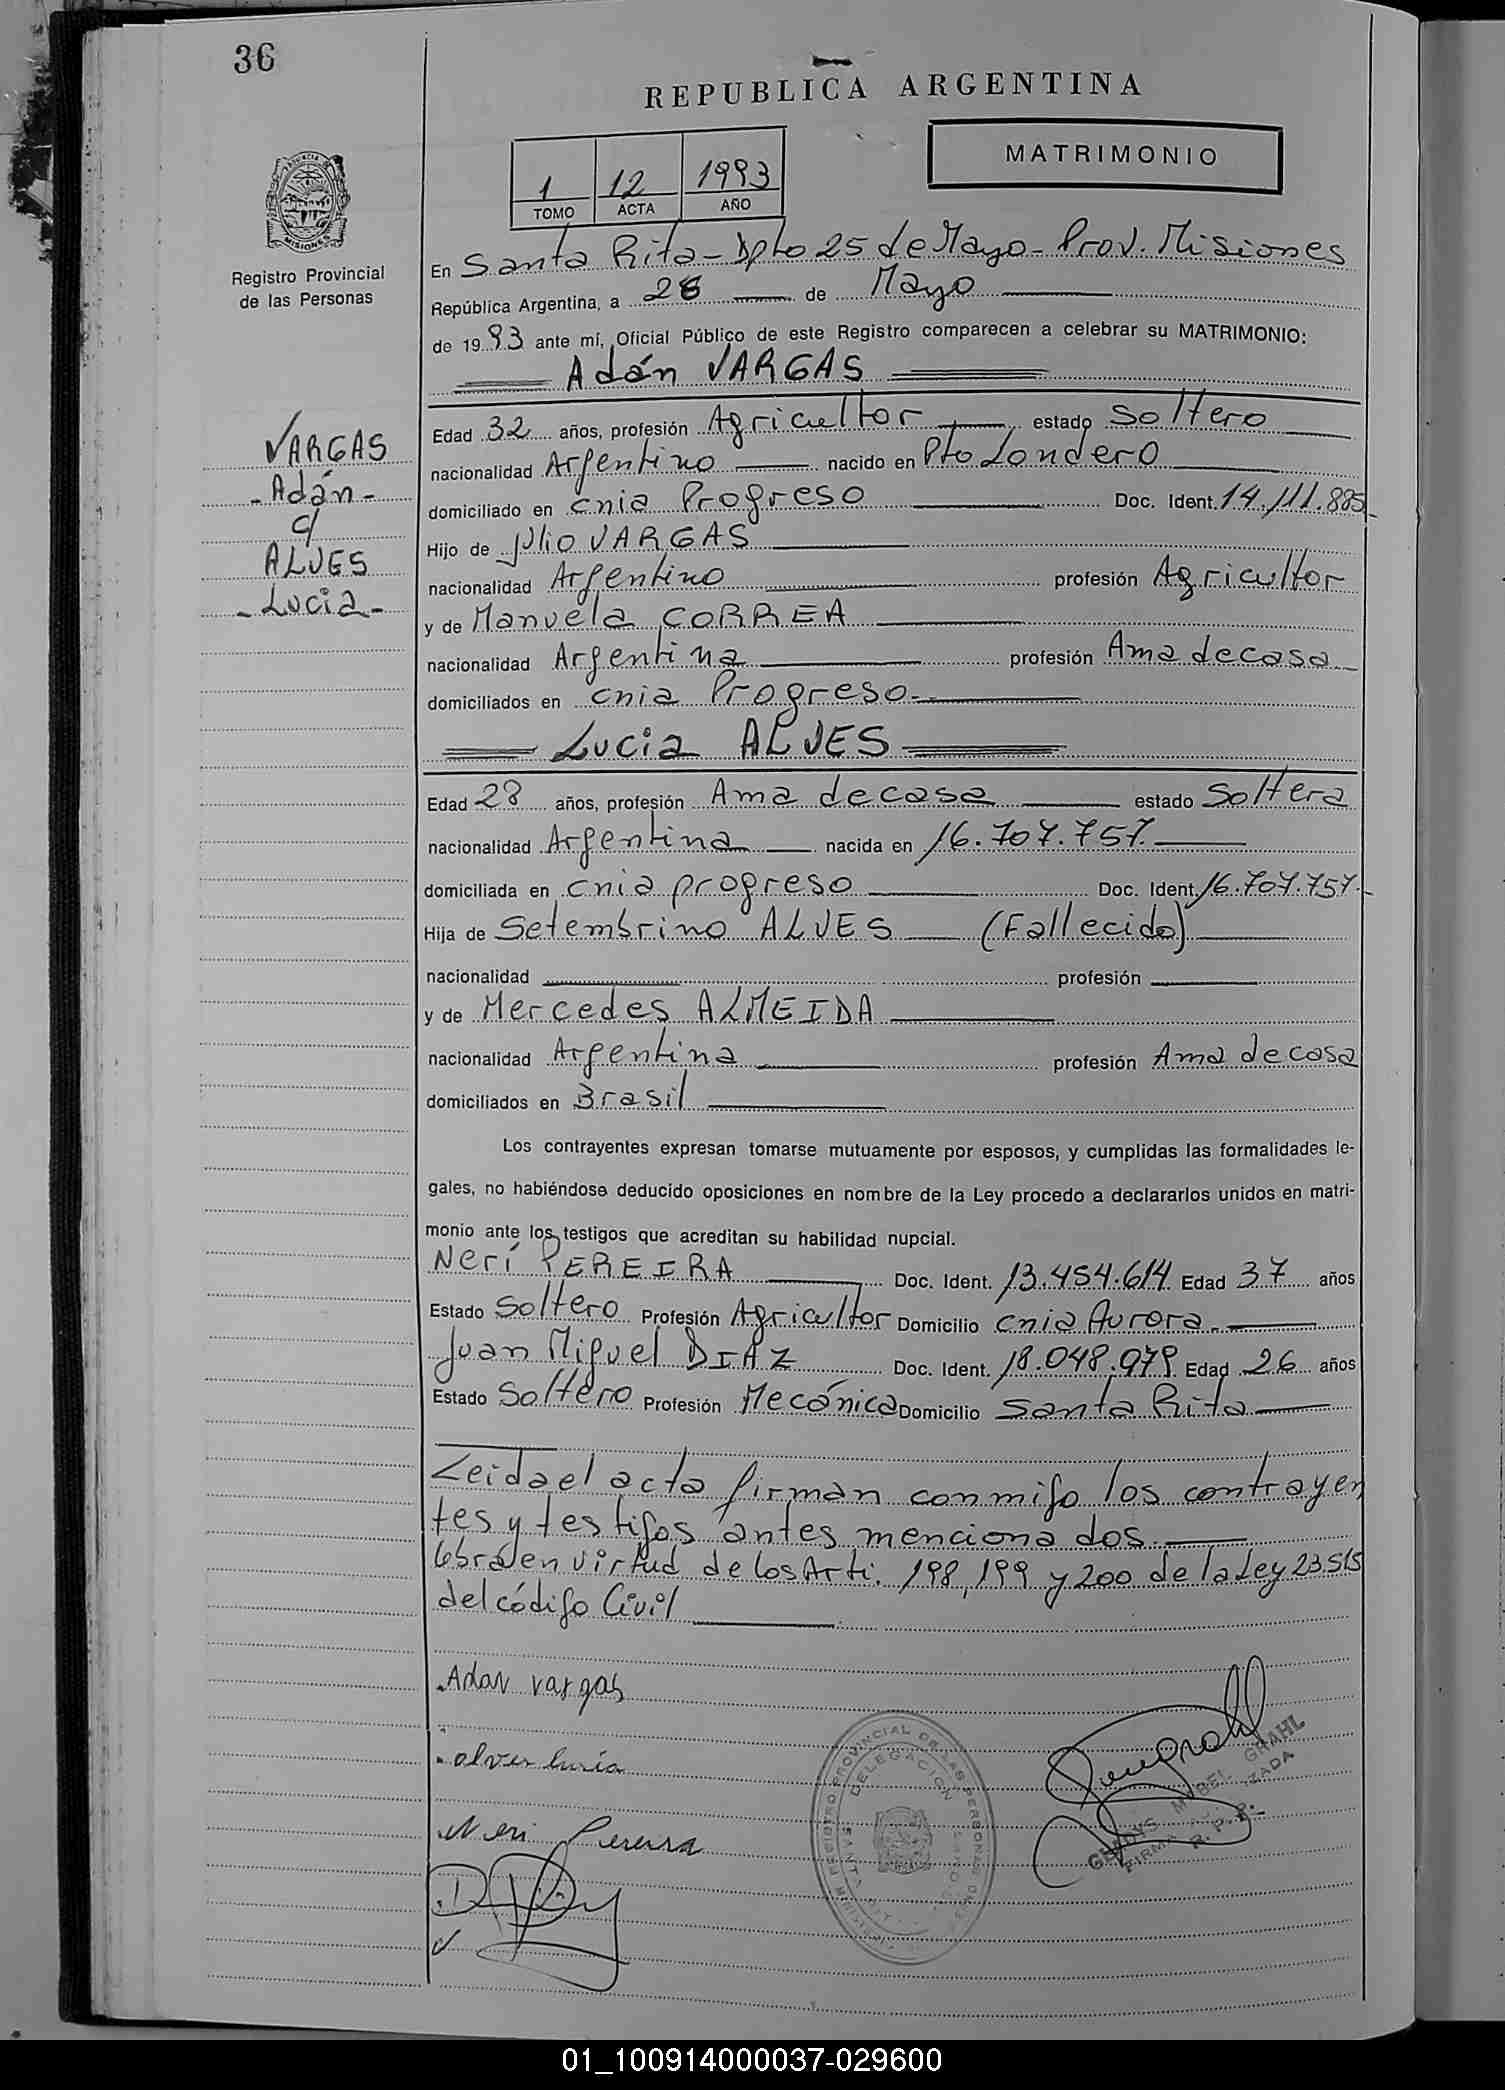 36
REPUBLICA ARGENTINA
MATRIMONIO
1 12 1993
TOMO ACTA AÑO
MISIONES
Registro Provincial
de las Personas
En Santa Rita - Dpto 25 de Mayo - Prov. Misiones
República Argentina, a 28 de Mayo
de 1993 ante mí, Oficial Público de este Registro comparecen a celebrar su MATRIMONIO:
Adán VARGAS
VARGAS
- Adán -
c/
ALVES
- Lucia -
Edad 32 años, profesión Agricultor estado Soltero
nacionalidad Argentino nacido en Pto Londero
domiciliado en cnia Progreso Doc. Ident. 14.111.885
Hijo de Julio VARGAS
nacionalidad Argentino profesión Agricultor
y de Manuela CORREA
nacionalidad Argentina profesión Ama de casa
domiciliados en cnia Progreso.-
Lucia ALVES
Edad 28 años, profesión Ama de casa estado Soltera
nacionalidad Argentina nacida en 16.707.757.
domiciliada en cnia progreso Doc. Ident. 16.707.757.-
Hija de Setembrino ALVES (Fallecido)
nacionalidad profesión
y de Mercedes ALMEIDA
nacionalidad Argentina profesión Ama de casa
domiciliados en Brasil
Los contrayentes expresan tomarse mutuamente por esposos, y cumplidas las formalidades le-
gales, no habiéndose deducido oposiciones en nombre de la Ley procedo a declararlos unidos en matri-
monio ante los testigos que acreditan su habilidad nupcial.
Nerí PEREIRA Doc. Ident. 13.454.614 Edad 37 años
Estado Soltero Profesión Agricultor Domicilio cnia Aurora.
Juan Miguel DIAZ Doc. Ident. 18.048.979 Edad 26 años
Estado Soltero Profesión Mecánica Domicilio Santa Rita
Leida el acta firman conmigo los contrayen
tes y testigos antes mencionados.
en virtud de los Arti. 198, 199 y 200 de la Ley 23515
del código Civil
Adan vargas
alves lucía
Neri Pereira
REGISTRO PROVINCIAL DE LAS PERSONAS
DELEGACION
GLADYS MABEL GRAHL
FIRMA AUTORIZADA
R. P. P.
01_100914000037-029600